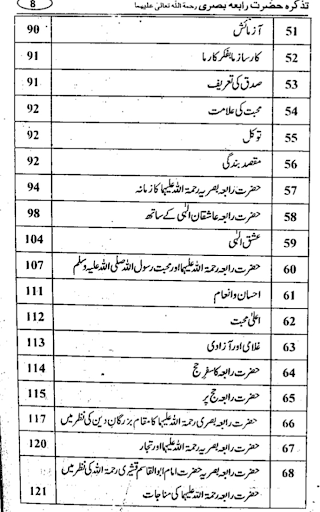 تذکرہ حضرت رابعہ بصری رحمۃ اللہ تعالیٰ علیہما 8
51 آزمائش 90
52 کارساز ما بفکر کار ما 91
53 صدق کی تعریف 91
54 محبت کی علامت 92
55 توکل 92
56 مقصد بندگی 92
57 حضرت رابعہ بصریہ رحمۃ اللہ علیہا کا زمانہ 94
58 حضرت رابعہ عاشقان الٰہی کے ساتھ 98
59 عشق الٰہی 104
60 حضرت رابعہ رحمۃ اللہ علیہا اور محبت رسول اللہ صلی اللہ علیہ وسلم 107
61 احسان و انعام 111
62 اعلیٰ محبت 112
63 غلامی اور آزادی 113
64 حضرت رابعہ کا سفر حج 114
65 حضرت رابعہ حج پر 115
66 حضرت رابعہ بصری رحمۃ اللہ علیہا کا مقام بزرگان دین کی نظر میں 117
67 حضرت رابعہ بصریہ رحمۃ اللہ علیہا اور تجار 120
68 حضرت رابعہ بصریہ حضرت امام ابوالقاسم قشیری رحمۃ اللہ کی نظر میں
حضرت رابعہ رحمۃ اللہ علیہا کی مناجات 121